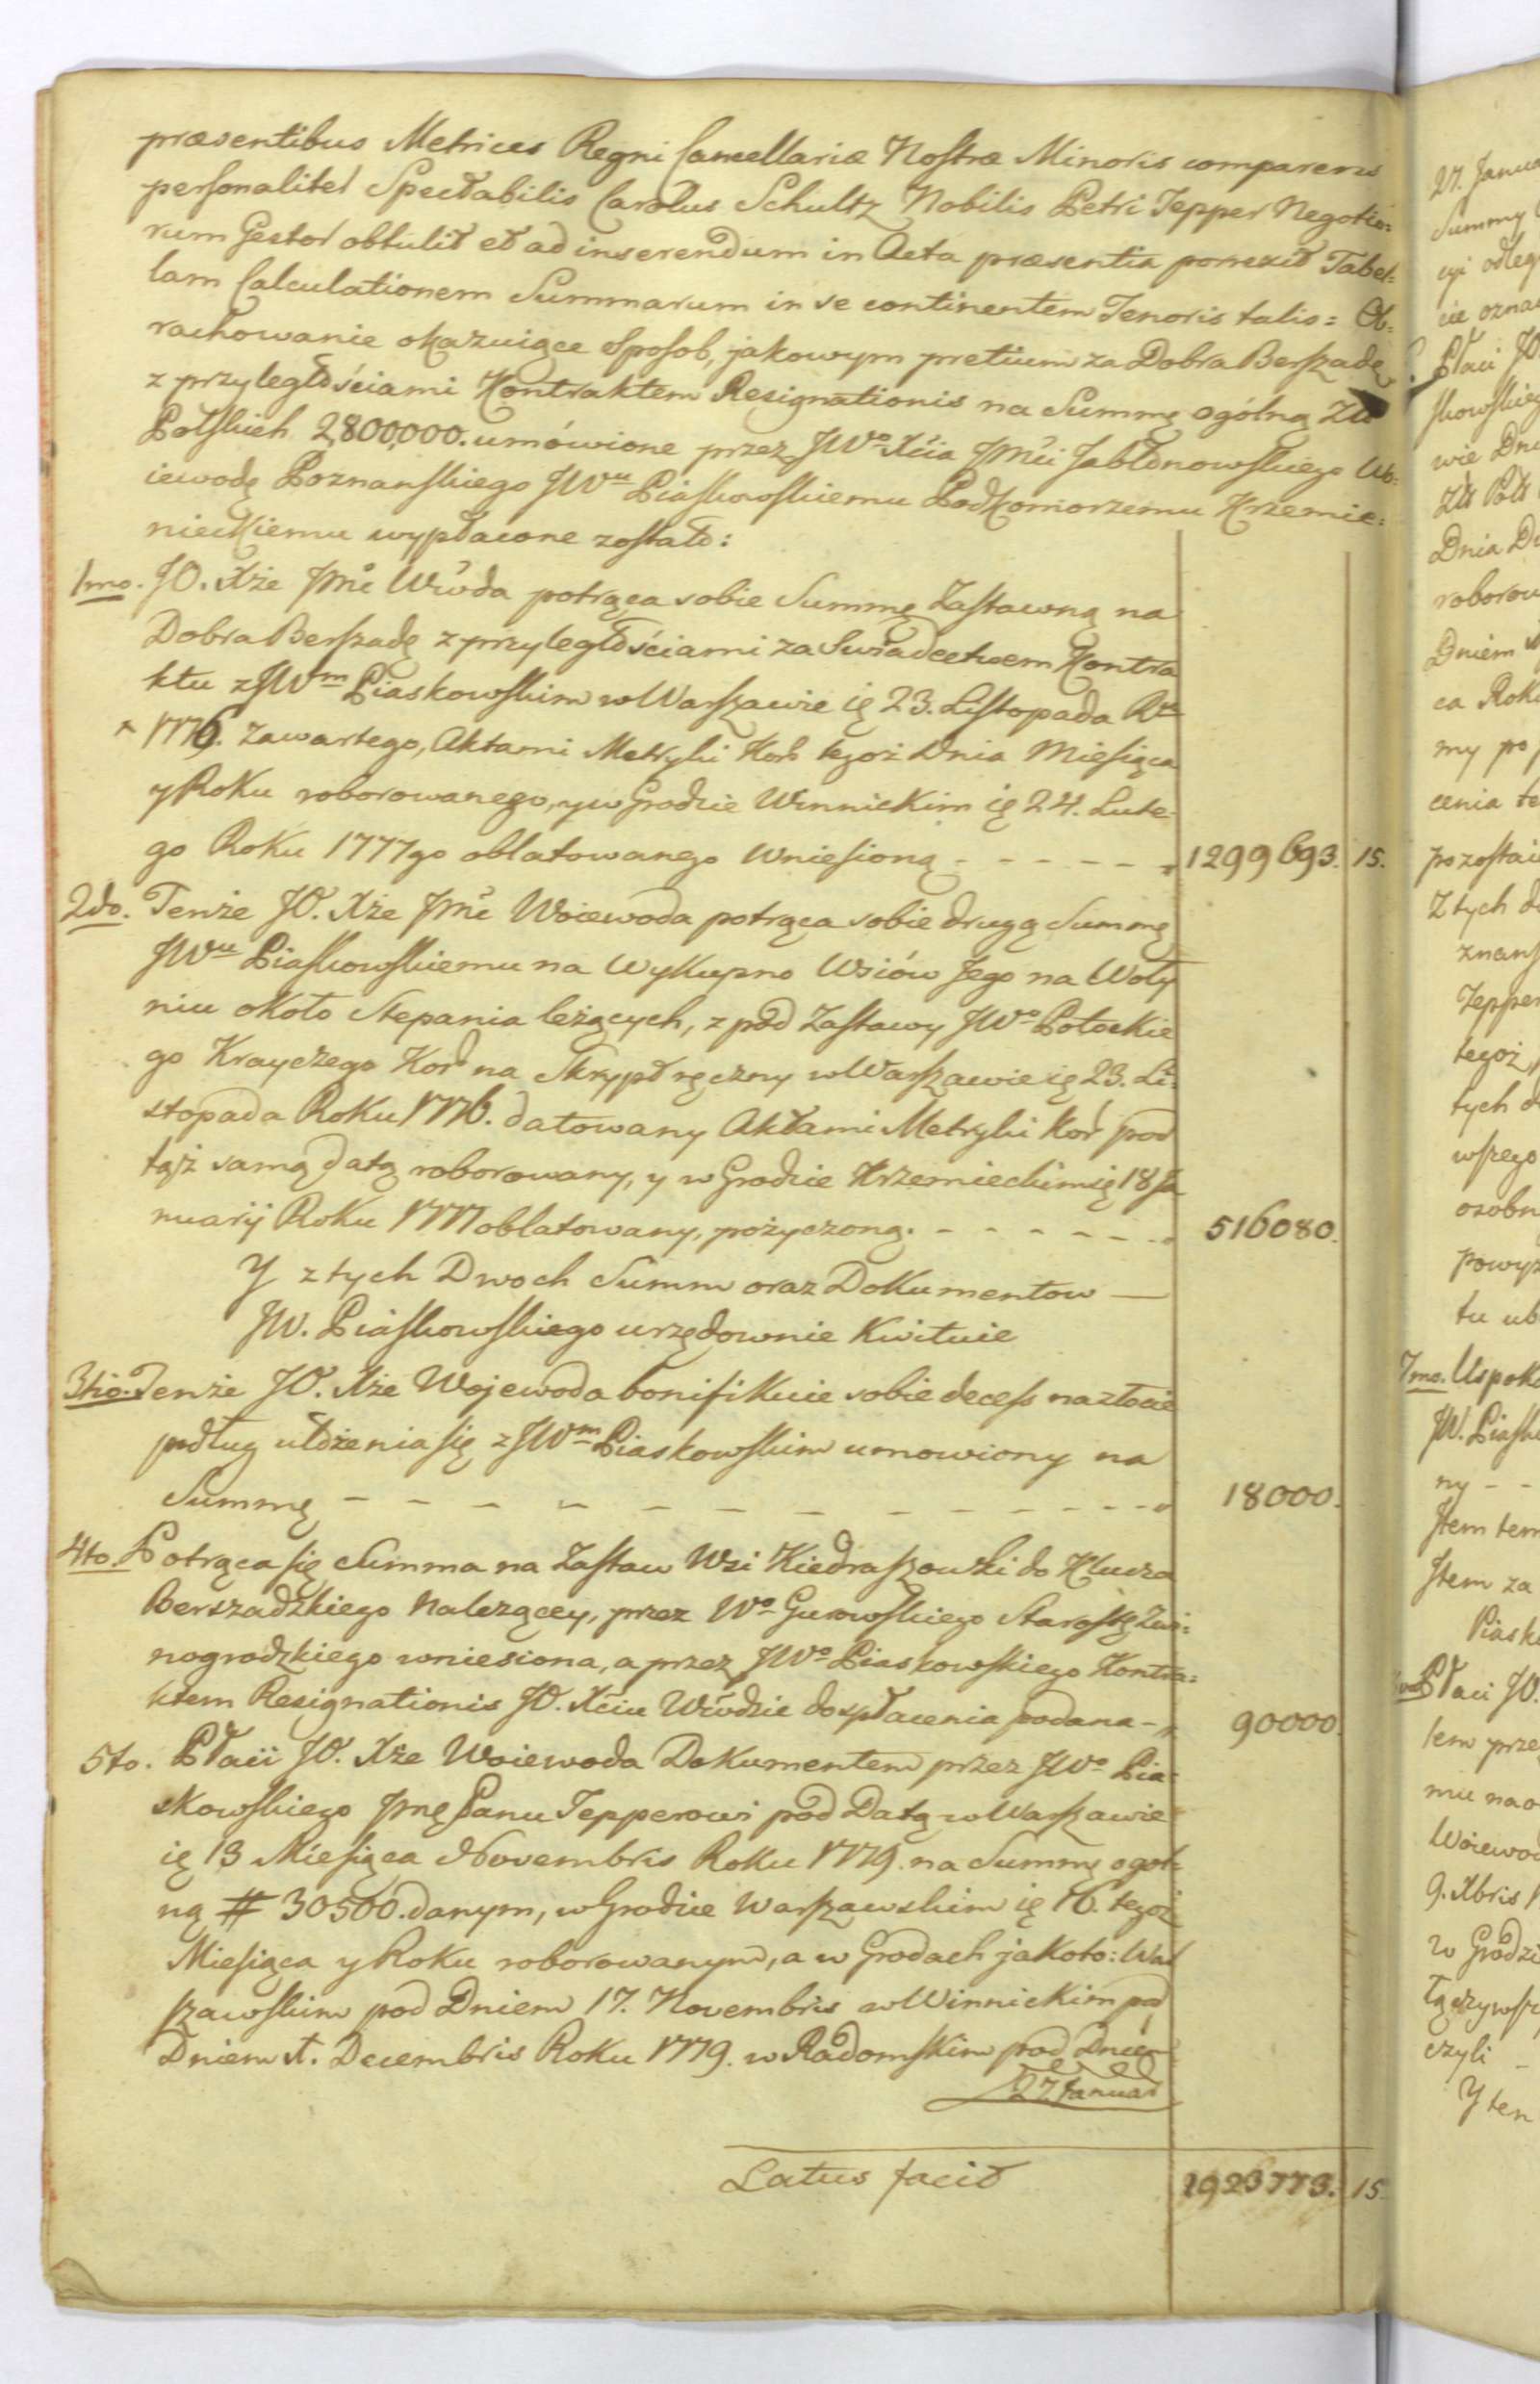 præsentibus Metrices Regni Cancellariæ Nostræ Minoris comparens
personaliter Spectabilis Carolus Schultz Nobilis Petri Tepper Negotio=
rum Gestor obtulit et ad inserendum in Acta præsentia porrexit Tabel=
lam Calculationem Summarum in se continentem Tenoris talis = Ob=
rachowanie okazuiące sposob, jakowym pretium za Dobra Berszadę
z przyległościami Kontraktem Resignationis na Summę ogólną Złł
Polskich 2,800,000. umówione przez JWo Xcia Jmci Jabłonowskiego Wo=
iewodę Poznanskiego JWu Piaskowskiemu Podkomorzemu Krzemie=
nieckiemu wypłacone zostało:
1mo. JO. Xże Jmć Wwda potrąca sobie Summę Zastawną na
Dobra Berszadę z przyległościami za Swiadectwem Kontra
ktu z JWm Piaskowskim w Warszawie ię 23. Listopada Rku
1776. Zawartego, Aktami Metryki Kor tegoż Dnia Miesiąca
y Roku roborowanego, y w Grodzie Winnickim ię 24. Lute=
go Roku 1777go oblatowanego wniesioną - - - - - - 1299693. 15.
2do. Tenże JO. Xże Jmć Woiewoda potrąca sobie drugą Summę
JWu Piaskowskiemu na Wykupno Wsiów Jego na Woły
niu około Stepania leżących, z pod Zastawy JWo Potockie
go Krayczego Kor na Skrypt ręczny w Warszawie ię 23. Li=
stopada Roku 1776. datowany Aktami Metryki Kor pod
tąż samą datą roborowany, y w Grodzie Krzemieckim ię 18 Ja
nuarij Roku 1777 oblatowany, pożyczoną. - - - - - - 516080.
Y z tych Dwoch Summ oraz Dokumentow —
JW. Piaskowskiego urzędownie Kwituie
3tio. Tenże JO. Xże Wojewoda bonifikuie sobie decess na złocie
podług ułożenia się z JWm Piaskowskim umowiony na
Summę - - - - - - - - - - - - 18000.
4to. Potrąca się Summa na Zastaw Wsi Kiedraszowki do Klucza
Berszadzkiego Należącey, przez Wo Gurowskiego Starostę Zwi=
nogrodzkiego wniesiona, a przez JWo Piaskowskiego Kontra=
ktem Resignationis JO. Xciu Wwdzie do spłacenia podana - 90000.
5to. Płaci JO. Xże Woiewoda Dokumentem przez JWo Pia=
skowskiego Jmę Panu Tepperowi pod Datą w Warszawie
ię 13 Miesiąca Novembris Roku 1779. na Summę ogol=
ną # 30500. danym, w Grodzie Warszawskim ię 16. tegoż
Miesiąca y Roku roborowanym, a w Grodach jako to: War
szawskim pod Dniem 17. Novembris w Winnickim pod
Dniem 1. Decembris Roku 1779. w Radomskim pod Dniem
27 Januar
Latus facit 1923773. 15.
27. Janua
Summy
cyi odleg
cie oznac
Płaci JO
skowskieg
wie Dni
Złł Pols
Dnia De
roborow
Dniem
ca Roku
my po
cenia te
pozostai
Z tych d
znans
Tepper
tegoż
tych d
wszego
osobn
powyż
tu ub
7mo. Uspoko
JW. Piask
ny - -
Item tem
Item za
Piask
Płaci JO.
tem prze
mu na o
Woiewod
9. Xbris 1
w Grodzi
łączywsz
czyli -
Y ten